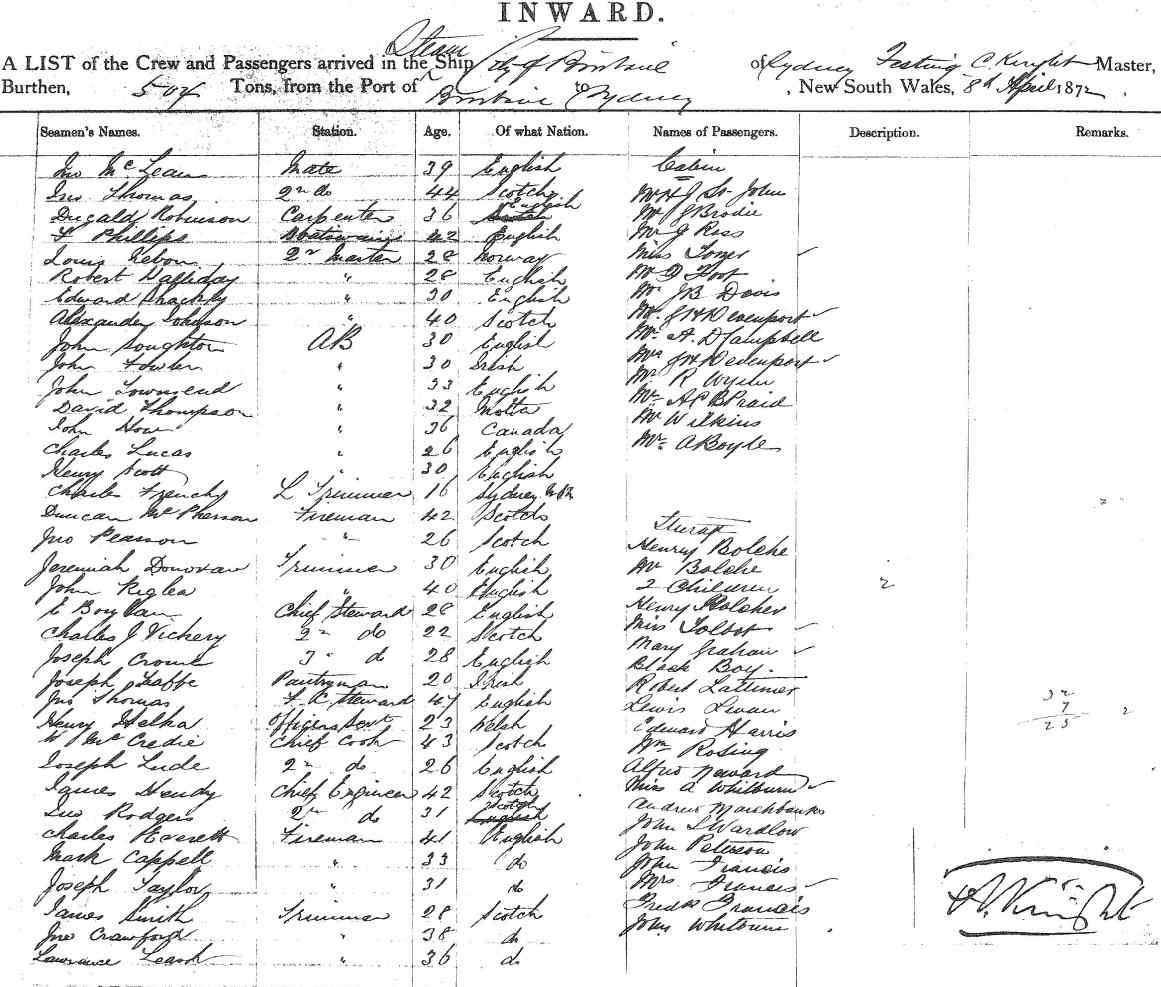 INWARD.
A LIST of the Crew and Passengers arrived in the Steam Ship City of Brisbane of Sydney C. Knight Master,
Burthen, 504 Tons, from the Port of Brisbane to Sydney, New South Wales, 8th April 1872.
Seamen's Names. Station. Age. Of what Nation. Names of Passengers. Description. Remarks.
Jno McLean Mate 39 English Cabin
Jno Thomas 2nd do 44 Scotch Mr H J St John
Dugald Robinson Carpenter 36 English Scotch Mr J Brodie
F Phillips Boatswain 42 English Mr J Ross
Louis 2nd Master 28 Norway Miss
Robert Halliday " 28 English Mr D Foot
Edward " 30 English Mr J B Davis
Alexander Johnson " 40 Scotch Mr J H Devenport
John Boughton AB 30 English Mr A. D Campbell
John Fowler " 30 Irish Mrs J H Devenport
John Townsend " 33 English Mr R
David Thompson " 32 Malta Mr
John How " 36 Canada Mr Wilkins
Charles Lucas " 26 English Mr A Boyle
Henry Scott " 30 English
Charles French L Trimmer 16 Sydney
Duncan McPherson Fireman 42 Scotch
Jno Pearson " 26 Scotch Henry Bolche
Jeremiah Donovan Trimmer 30 English Mr Bolche
John Riglea " 40 English 2 Children
E Boylan Chief Steward 28 English Henry
Charles J Vickery 2nd do 22 Scotch Miss Talbot
Joseph Crome 3rd do 28 English Mary Graham
Joseph Pantryman 20 Irish Black Boy.
Jno Thomas F. C. Steward 47 English Robert Lattimer
Henry Helka Officers Servt 23 Welsh Lewis
W McCredie Chief Cook 43 Scotch Edward Harris
Joseph Lude 2nd do 26 English Wm Rosing
James Hendy Chief Engineer 42 Scotch Alfred
Jno Rodgers 2nd do 31 Scotch English Miss A Whitburn
Charles Everett Fireman 41 English Andrew Marchbanks
Mark Cappell " 33 do John S Wardlow
Joseph Taylor " 31 do John Peterson
James Smith Trimmer 28 Scotch John Francis
Jno Crawford " 38 do Mrs Francis
Lawrance Leash " 36 do Fredk Francis
John Whitburn
32
7
25
Knight